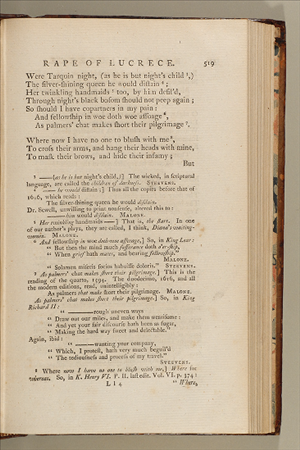 RAPE OF LUCRECE. 519
Were Tarquin night, (as he is but night's child ³,)
The silver-shining queen he would distain ⁴;
Her twinkling handmaids ⁵ too, by him defil'd,
Through night's black bosom should not peep again;
So should I have copartners in my pain:
And fellowship in woe doth woe assuage ⁶,
As palmers' chat makes short their pilgrimage ⁷.
Where now I have no one to blush with me ⁸,
To cross their arms, and hang their heads with mine,
To mask their brows, and hide their infamy;
But
³ —(as he is but night's child,)] The wicked, in scriptural
language, are called the children of darkness. STEEVENS.
⁴ — he would distain:] Thus all the copies before that of
1616, which reads:
The silver-shining queen he would disdain.
Dr. Sewell, unwilling to print nonsense, altered this to:
———him would disdain. MALONE.
⁵ Her twinkling handmaids—] That is, the stars. In one
of our author's plays, they are called, I think, Diana's waiting-
women. MALONE.
⁶ And fellowship in woe doth woe assuage,] So, in King Lear:
" But then the mind much sufferance doth o'erskip,
" When grief hath mates, and bearing fellowship."
MALONE.
" Solamen miseris socios habuisse doloris." STEEVENS.
⁷ As palmers' chat makes short their pilgrimage.] This is the
reading of the quarto, 1594. The duodecimo, 1616, and all
the modern editions, read, unintelligibly:
As palmers that make short their pilgrimage. MALONE.
As palmers' chat makes short their pilgrimage.] So, in King
Richard II:
" ———rough uneven ways
" Draw out our miles, and make them wearisome:
" And yet your fair discourse hath been as sugar,
" Making the hard way sweet and delectable."
Again, ibid:
" ———wanting your company,
" Which, I protest, hath very much beguil'd
" The tediousness and process of my travel."
STEEVENS.
⁸ Where now I have no one to blush with me,] Where for
whereas. So, in K. Henry VI. P. II. last edit. Vol. VI. p. 374:
L l 4 " Where,